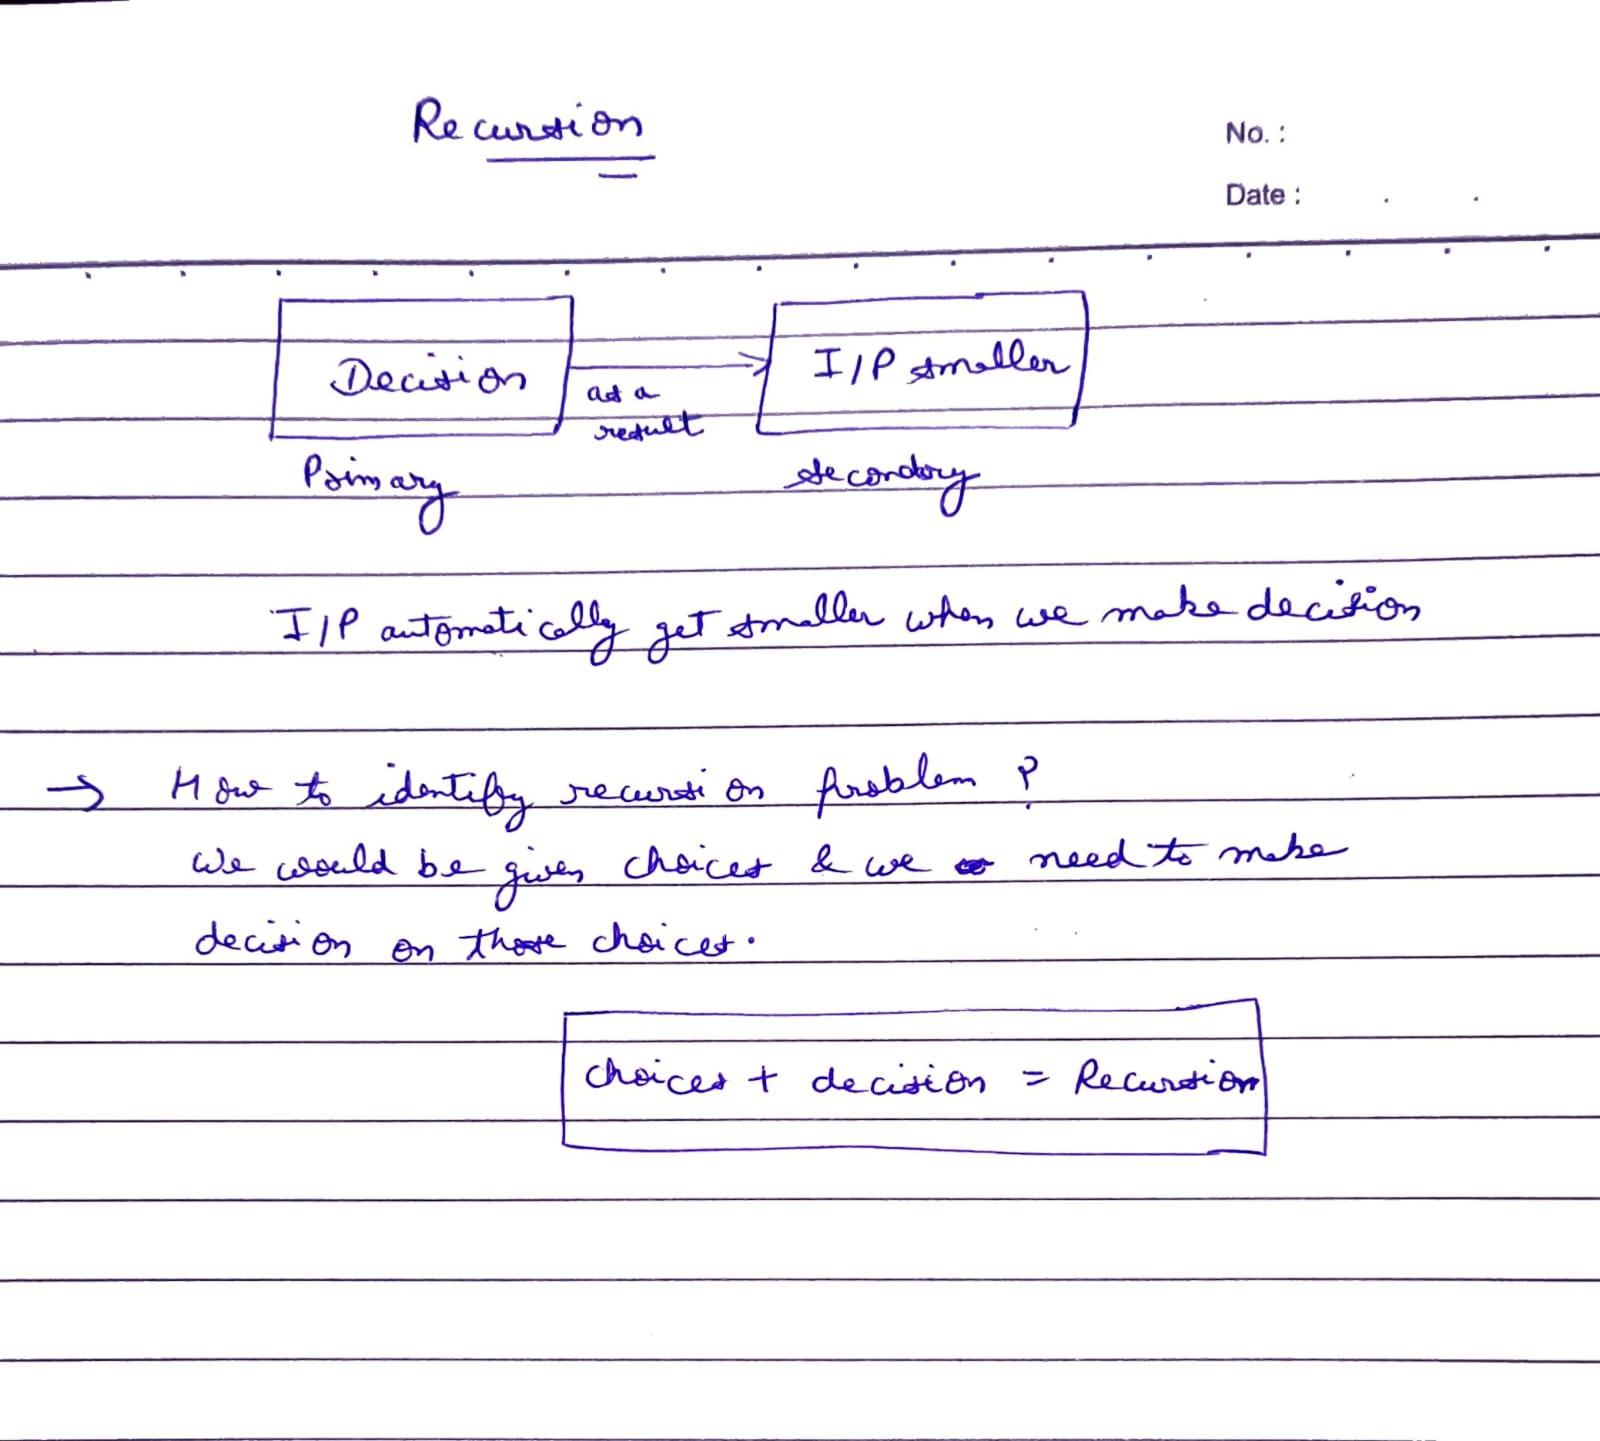 Recursion
No. :
Date :
Decision
as a
result
I/P smaller
Primary
secondary
I/P automatically get smaller when we make decision
→ How to identify recursion problem ?
We would be given choices & we need to make
decision on those choices.
choices + decision = Recursion